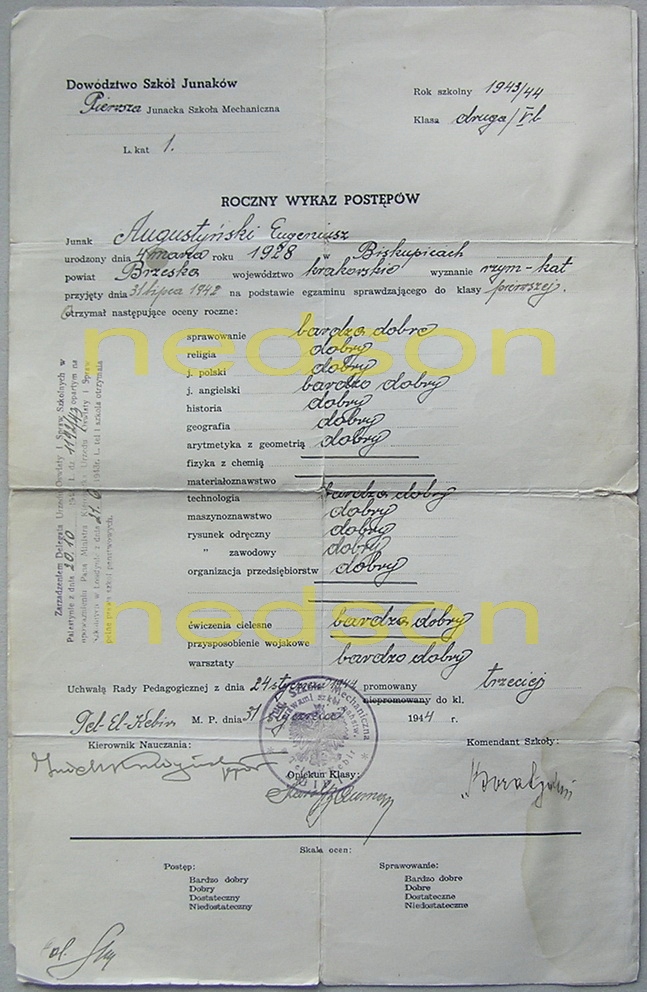 Dowództwo Szkół Junaków
Pierwsza Junacka Szkoła Mechaniczna
Rok szkolny 1943/44
Klasa druga/Vb
L. kat 1.
ROCZNY WYKAZ POSTĘPÓW
Junak Augustyński Eugeniusz
urodzony dnia 4 marca roku 1928 w Biskupicach
powiat Brzesko województwo krakowskie wyznanie rzym-kat
przyjęty dnia 31 lipca 1942 na podstawie egzaminu sprawdzającego do klasy pierwszej.
Otrzymał następujące oceny roczne:
sprawowanie bardzo dobre
religia dobry
j. polski dobry
j. angielski bardzo dobry
historia dobry
geografia dobry
arytmetyka z geometrią dobry
fizyka z chemią
materiałoznawstwo
technologia bardzo dobry
maszynoznawstwo dobry
rysunek odręczny dobry
" zawodowy dobry
organizacja przedsiębiorstw dobry
ćwiczenia cielesne bardzo dobry
przysposobienie wojskowe
warsztaty bardzo dobry
Zarządzeniem Delegata Urzędu Oświaty i Spraw Szkolnych w
Palestynie z dnia 20.10 L. dz. 1194/43 opartym na
upoważnieniu Pana Ministra Urzędu Oświaty i Spraw
Szkolnych w Londynie z dnia 21.6 1943r. L. tej szkoła otrzymała
pełne prawa szkół państwowych.
Uchwałą Rady Pedagogicznej z dnia 24 stycznia 1944 promowany trzeciej
niepromowany do kl.
Tel-El-Kebir M. P. dnia 31 stycznia 1944 r.
Kierownik Nauczania:
Komendant Szkoły:
Opiekun Klasy:
Skala ocen:
Postęp:
Bardzo dobry
Dobry
Dostateczny
Niedostateczny
Sprawowanie:
Bardzo dobre
Dobre
Dostateczne
Niedostateczne
nedson
nedson